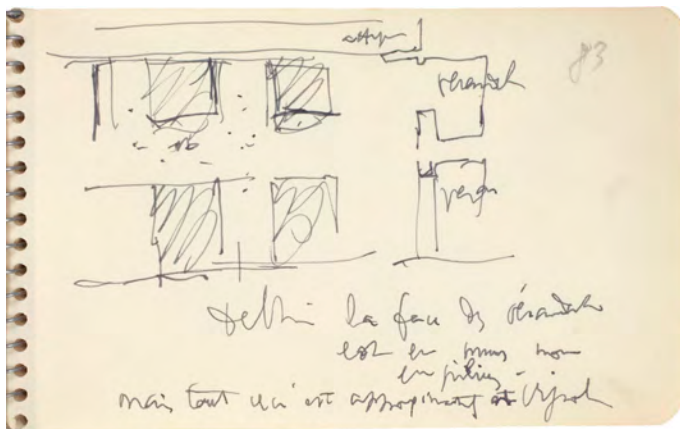 attique
83
vérandah
verger
Delhi la face des vérandahs
est en murs non
en piliers -
mais tout ceci est approximatif et